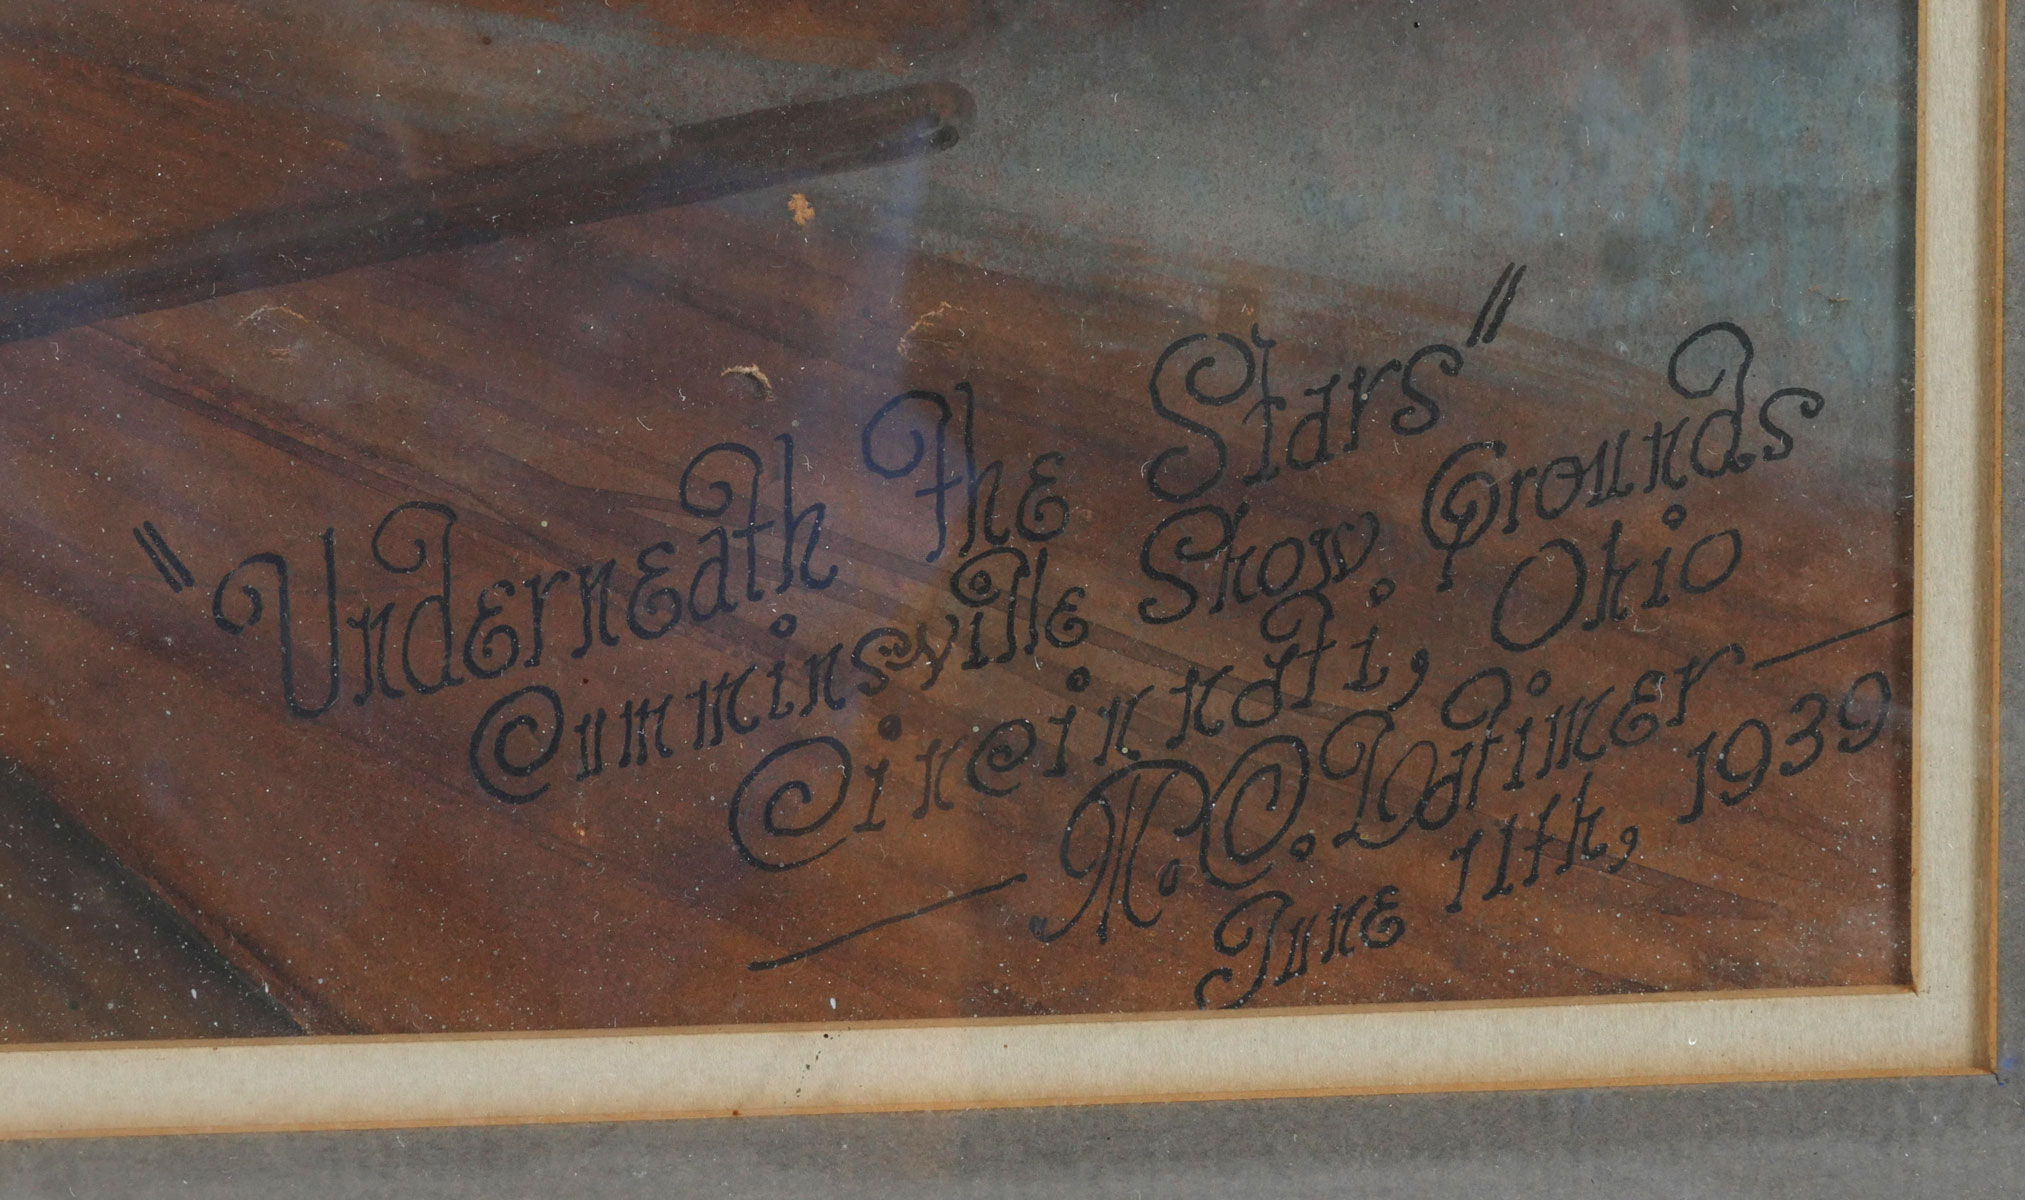 "Underneath The Stars"
Cumminsville Show Grounds
Cincinnati, Ohio
— M. C. Latimer —
June 11th, 1939